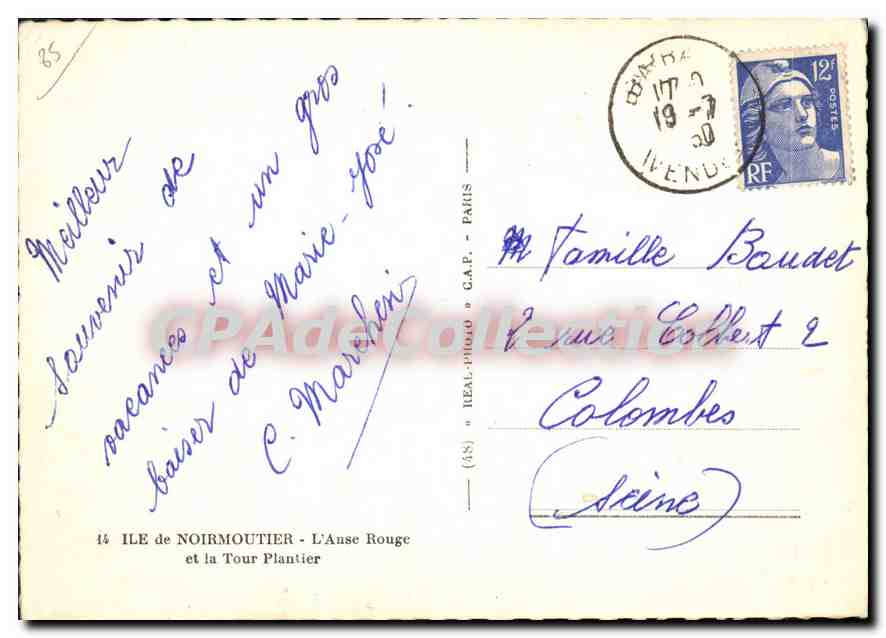 85
Meilleur
souvenir de
vacances et un gros
baiser de Marie-José!
C. Marchesi
14 ILE de NOIRMOUTIER - L'Anse Rouge
et la Tour Plantier
(48) « REAL-PHOTO » C.A.P. - PARIS
17
19 -7
50
VENDÉE
12F
POSTES
RF
M Famille Baudet
2 rue Colbert 2
Colombes
(Seine)
CPAdeCollection